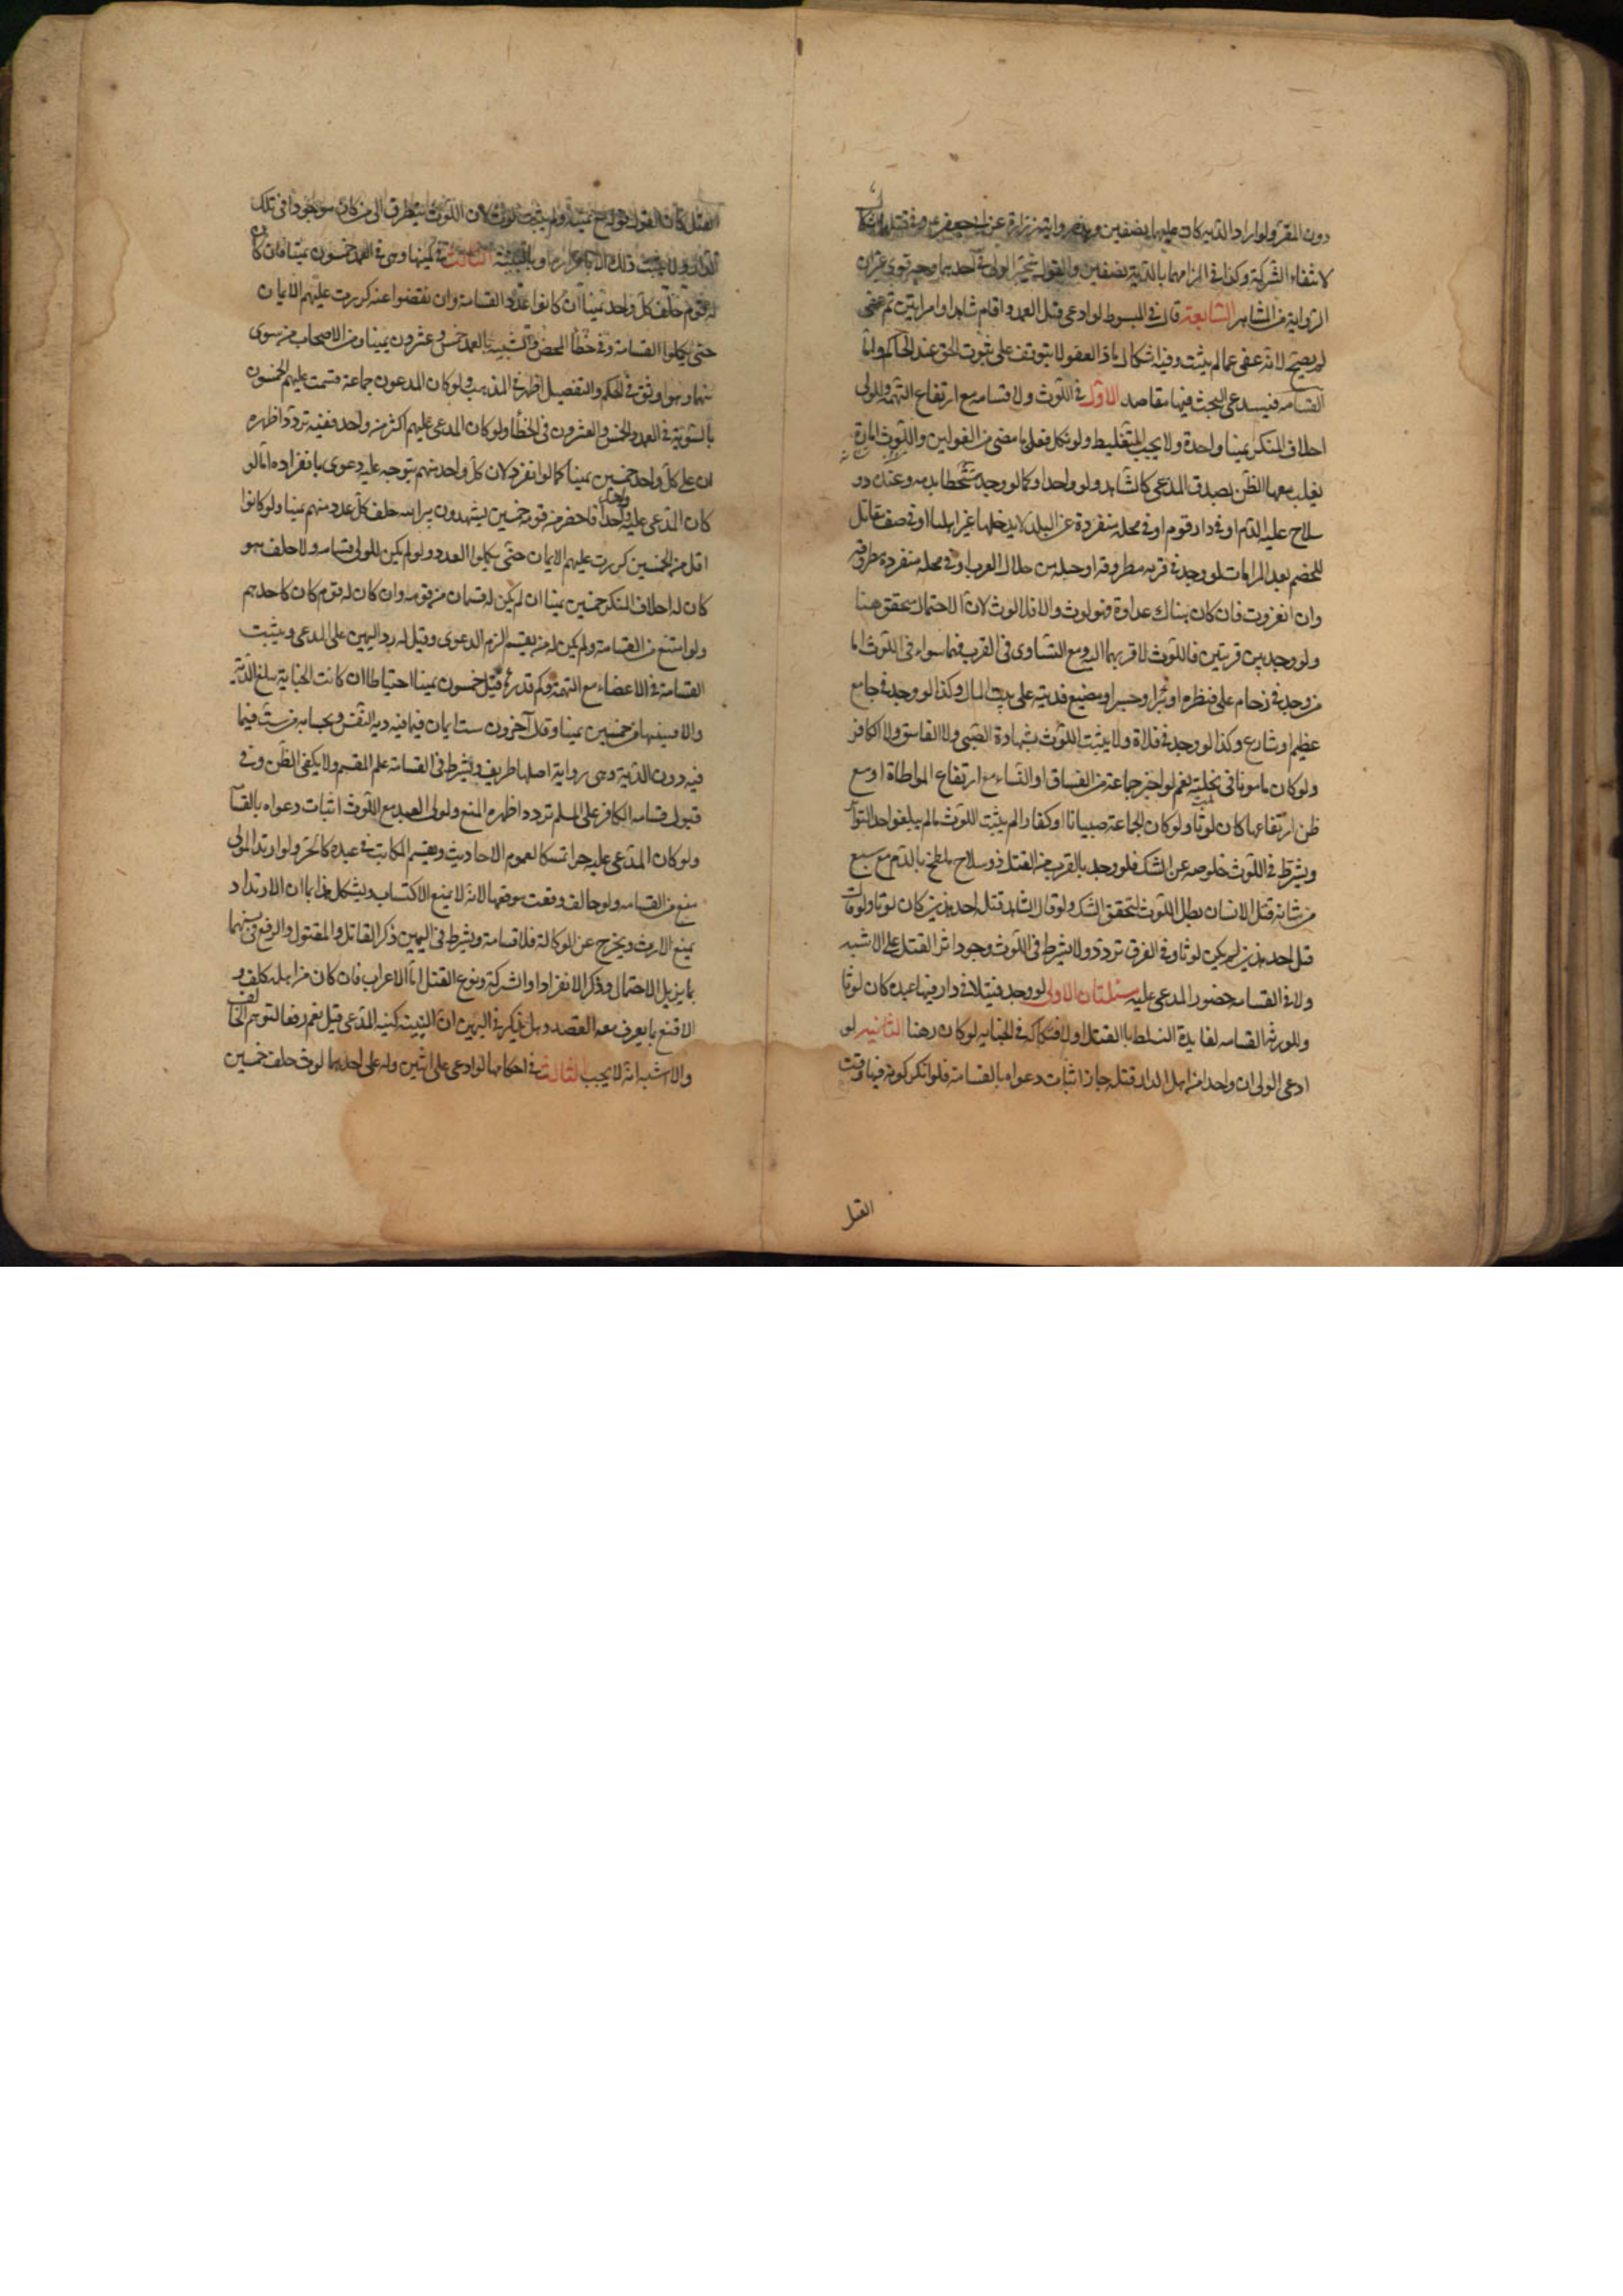 دون المقر ولو اراد الدية كانت عليهما نصفين وهذه رواية زرارة عن ابي جعفر ع وفي قتلهما اشكال
لانتفاء الشركة وكذا في الزامهما بالدية نصفين والقول بتخير الولي في احدهما وجه قوي غير ان
الرواية من المشاهير السابعة قال في المبسوط لو ادعى قتل العمد واقام شاهدا وامراتين ثم عفى
لم يصح لانه عفى عما لم يثبت وفيه اشكال اذ العفو لا يتوقف على ثبوت الحق عند الحاكم واما
القسامه فيستدعي البحث فيها مقاصد الاول في اللوث ولا قسامه مع ارتفاع التهمه وللولي
احلاف المنكر يمينا واحدة ولا يجب التغليظ ولو نكل فعلى ما مضى من القولين واللوث امارة
يغلب معها الظن بصدق المدعي كالشاهد ولو واحدا وكما لو وجد متشحطا بدمه وعنده ذو
سلاح عليه الدم او في دار قوم او في محله منفردة عن البلد لا يدخلها غير اهلها او في صف مقاتل
للخصم بعد المراماة لو وجد في قريه مطروقه او حله من حلال العرب او في محله منفردة مطروقه
وان انفردت فان كان هناك عداوة فهو لوث والا فلا لوث لان الاحتمال متحقق هنا
ولو وجد بين قريتين فاللوث لاقربهما اليه ومع التساوي في القرب فهما سواء في اللوث اما
من وجد في زحام على قنطره او بئر او جسر او مصنع فديته على بيت المال وكذا لو وجد في جامع
عظيم او شارع وكذا لو وجد في فلاة ولا يثبت اللوث بشهادة الصبي ولا الفاسق ولا الكافر
ولو كان مامونا في نحلته نعم لو اخبر جماعة من الفساق او النساء مع ارتفاع المواطاة او مع
ظن ارتفاعها كان لوثا ولو كان الجماعة صبيانا او كفارا لم يثبت اللوث مالم يبلغوا حد التواتر
ويشترط في اللوث خلوصه عن الشك فلو وجد بالقرب من القتيل ذو سلاح ملطخ بالدم مع سبع
من شانه قتل الانسان بطل اللوث لتحقق الشك ولو قال الشاهد قتله احد هذين كان لوثا ولو قال
قتل احد هذين لم يكن لوثا وفي الفرق تردد ولا يشترط في اللوث وجود اثر القتل على الاشبه
ولا في القسامه حضور المدعى عليه مسئلتان الاولى لو وجد قتيلا في دار فيها عبده كان لوثا
وللورثه القسامه لفايدة التسلط بالقتل او لافتكاكه في الجنايه لو كان رهنا الثانيه لو
ادعى الولي ان واحدا من اهل الدار قتله جاز اثبات دعواه بالقسامة فلو انكر كونه فيها وقت
القتل
القتل كان القول قوله مع يمينه ولم يثبت لوث لان اللوث يتطرق الى من كان موجودا في تلك
الدار ولا يثبت ذلك الا باقراره او بالبينة الثاني في كميتها وهي في العمد خمسون يمينا فان كان
له قوم حلف كل واحد يمينا ان كانوا عدد القسامة وان نقصوا عنه كررت عليهم الايمان
حتى يكملوا القسامة وفي خطأ المحض والشبيه بالعمد خمس وعشرون يمينا ومن الاصحاب من سوى
بينهما وهو اوثق في الحكم والتفصيل اظهر في المذهب ولو كان المدعون جماعة قسمت عليهم الخمسون
بالسوية في العمد والخمس والعشرون في الخطأ ولو كان المدعى عليهم اكثر من واحد ففيه تردد اظهره
ان على كل واحد خمسين يمينا كما لو انفرد لان كل واحد منهم يتوجه عليه دعوى بانفراده اما لو
كان المدعى عليه واحدا فاحضر من قومه خمسين يشهدون ببراءته حلف كل عدد منهم يمينا ولو كانوا
اقل من الخمسين كررت عليهم الايمان حتى يكملوا العدد ولو لم يكن للولي قسامه ولا حلف هو
كان له احلاف المنكر خمسين يمينا ان لم يكن له قسامه من قومه وان كان له قوم كان كاحدهم
ولو امتنع من القسامة ولم يكن له من يقسم الزم الدعوى وقيل له رد اليمين على المدعي ويثبت
القسامة في الاعضاء مع التهمة وكم قدرها قيل خمسون يمينا احتياطا ان كانت الجناية تبلغ الدية
والا فبنسبتها من خمسين يمينا وقال آخرون ست ايمان فيما فيه دية النفس وبحسابه من ست فيما
فيه دون الدية وهي رواية اصلها ظريف ويشترط في القسامة علم المقسم ولا يكفي الظن وفي
قبول قسامة الكافر على المسلم تردد اظهره المنع ولولي العبد مع اللوث اثبات دعواه بالقسامة
ولو كان المدعى عليه حرا تمسكا بعموم الاحاديث ويقسم المكاتب في عبده كالحر ولو ارتد الولي
منع من القسامه ولو خالف وقعت موقعها لانه لا يمنع الاكتساب ويشكل هذا بما ان الارتداد
يمنع الارث ويخرج عن الوكالة فلا قسامة ويشترط في اليمين ذكر القاتل والمقتول والرفع في نسبهما
بما يزيل الاحتمال وذكر الانفراد او الشركة ونوع القتل اما الاعراب فان كان من اهله كلف والا
قنع بما يعرف معه القصد وهل يذكر في اليمين ان النية نية المدعي قيل نعم دفعا لتوهم الحالف
والاشبه انه لا يجب الثالث في احكامها لو ادعى على اثنين وله على احدهما لوث حلف خمسين